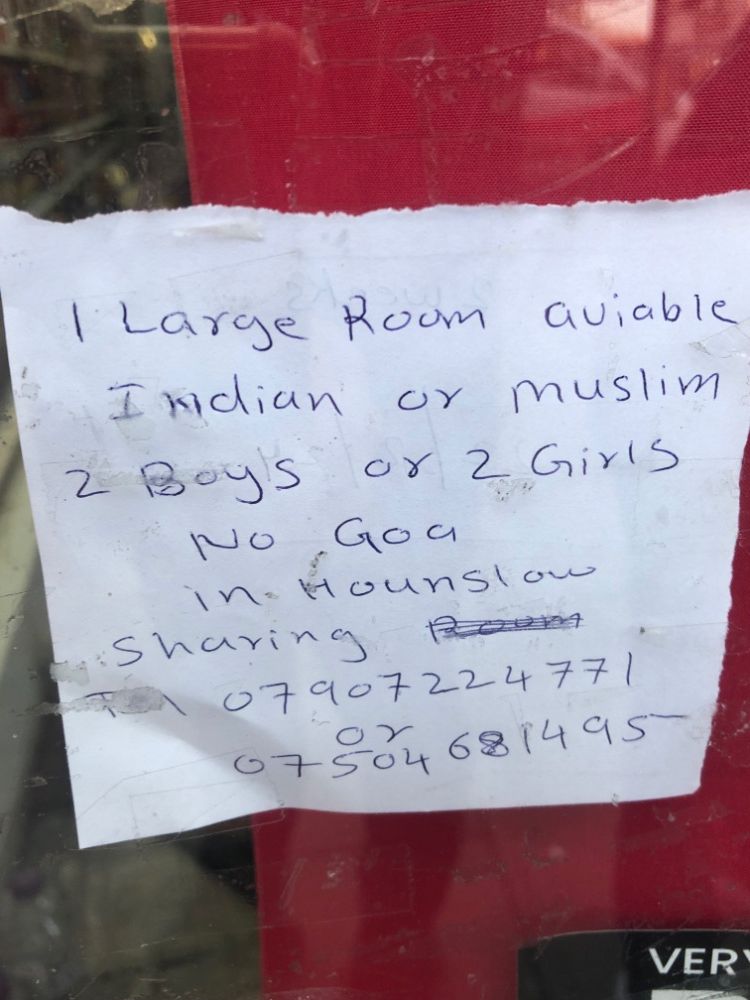 1 Large Room aviable
Indian or muslim
2 Boys or 2 Girls
No Goa
in Hounslow
Sharing Room
07907224771
or
07504681495
VERY